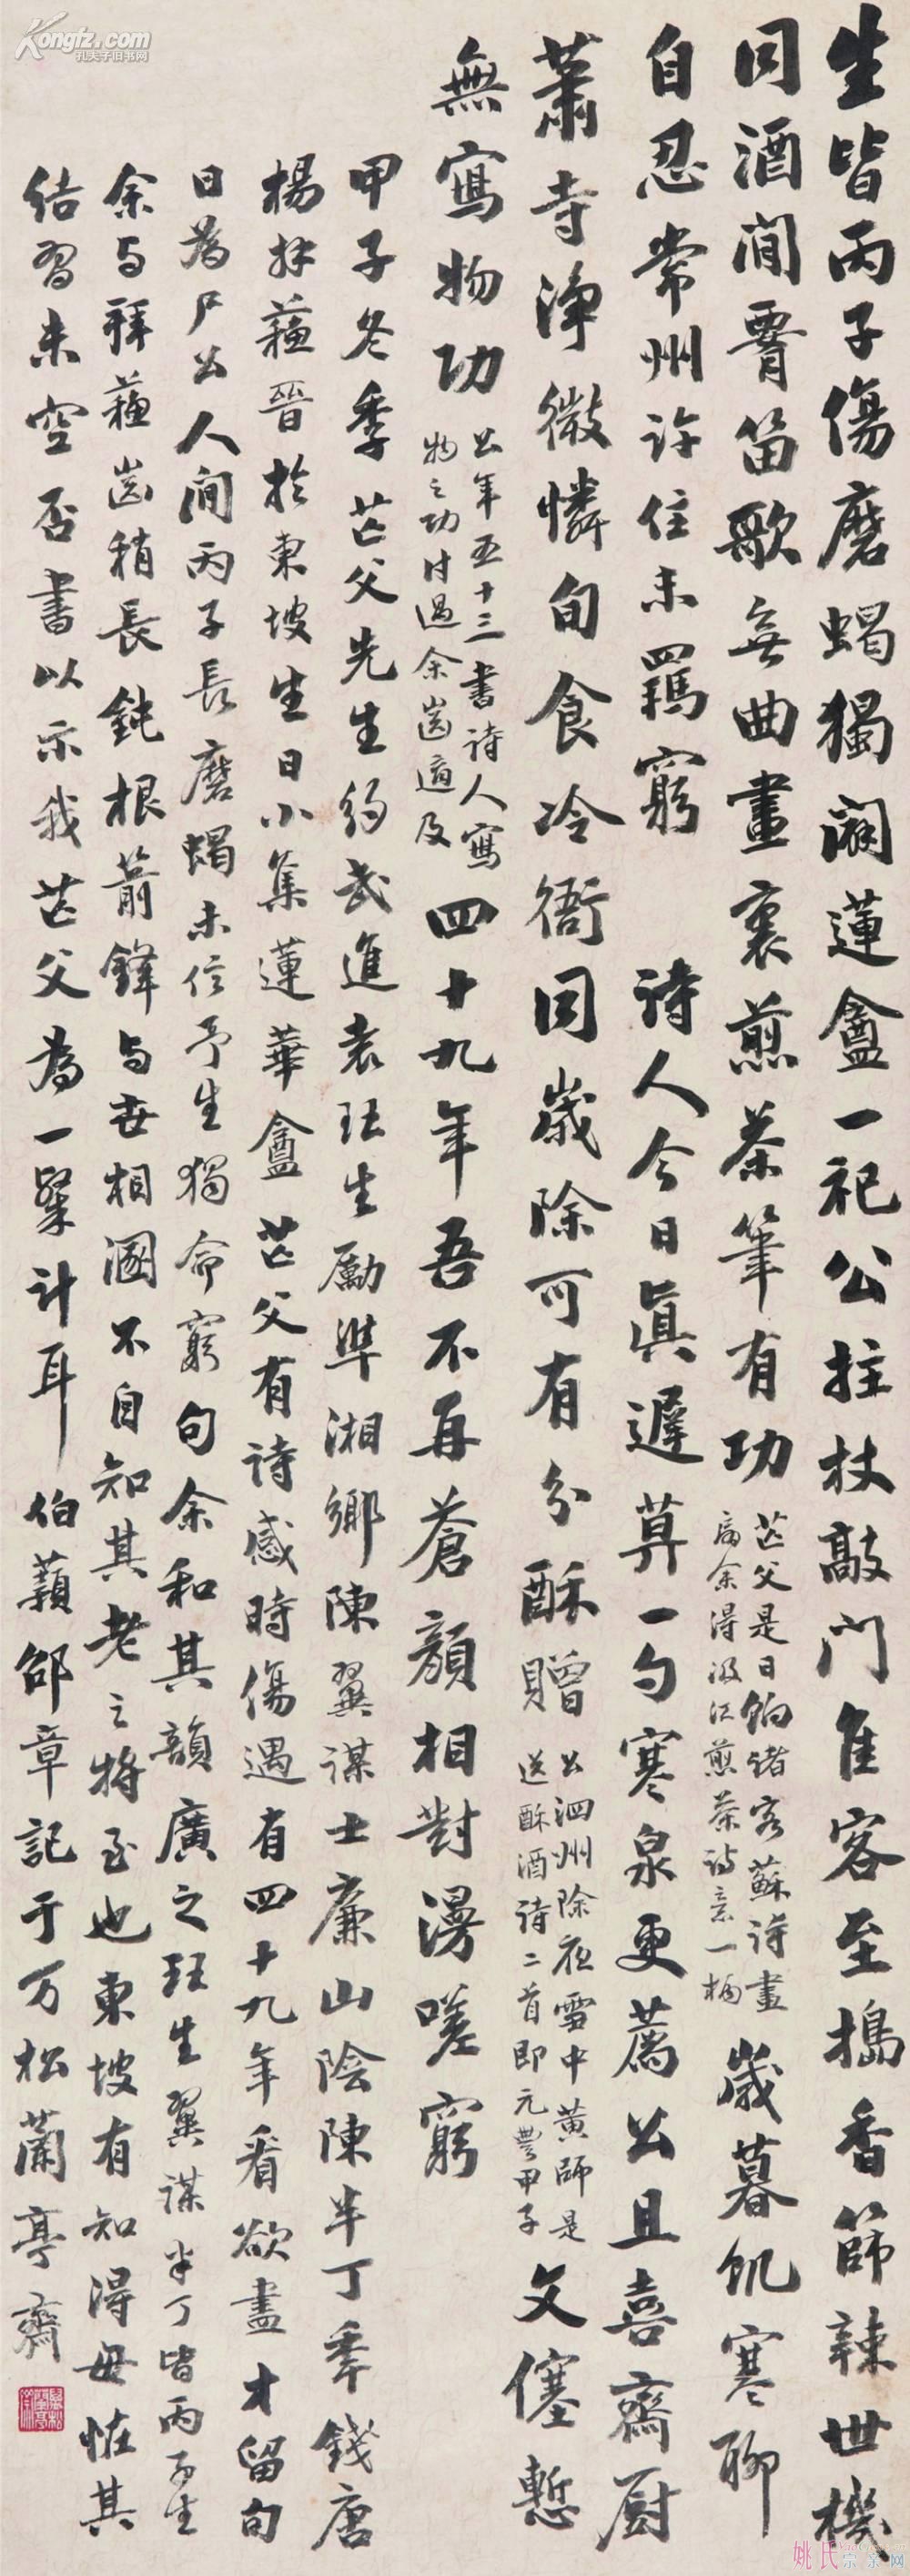 生皆丙子傷磨蝎獨闢蓮盦一祀公拄杖敲門隹客至搗香篩辣世機
同酒闌霫笛歌無曲畫裏煎茶筆有功
芒父是日餉諸客蘇詩畫
扇余得汲江煎茶詩意一柄
歲暮飢寒聊
自忍常州許住未羈窮
詩人今日真遲莫一勺寒泉更薦公且喜齋厨
蕭寺淨微憐旬食冷衙同歲除可有分酥贈
公泗州除夜雪中黃師是
送酥酒詩二首即元豐甲子
文僿慙
無寫物功
公年五十三書詩人寫
物之功時過余齒適及
四十九年吾不再蒼顏相對漫嗟窮
甲子冬季芒父先生約武進袁珏生勵準湘鄉陳翼謀士廉山陰陳半丁年錢唐
楊㧞蘓晉於東坡生日小集蓮華盦芒父有詩感時傷遇有四十九年看欲盡才留句
日為尸公人間丙子長磨蝎未信予生獨命窮句余和其韻廣之珏生翼謀半丁皆丙子生
余与拜蘓齒稍長鈍根前鋒与世相圂不自知其老之將至也東坡有知得毋恠其
結習未空否書以示我芒父為一粲計耳伯蘋邵章記于万松蘭亭齋
Kongfz.com
孔夫子旧书网
姚氏宗亲网